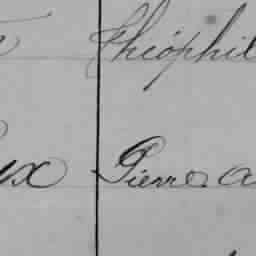 Théophil
ux Pierre a